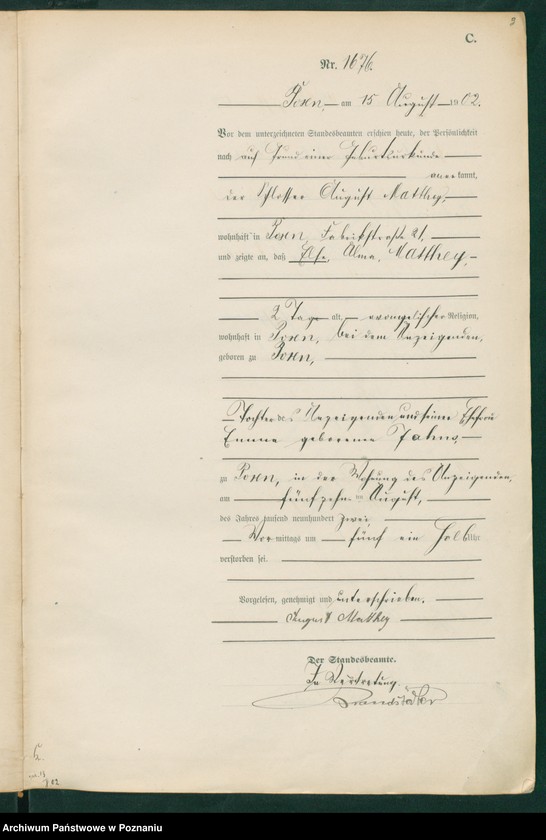 3
C.
Nr. 1676.
Posen, am 15 August 1902.
Vor dem unterzeichneten Standesbeamten erschien heute, der Persönlichkeit
nach auf Grund einer Geburtsurkunde
anerkannt,
der Schlosser August Matthey,
wohnhaft in Posen, Fabrikstraße 21,
und zeigte an, daß Else, Alma, Matthey,
2 Tage alt, evangelischer Religion,
wohnhaft in Posen, bei dem Anzeigenden,
geboren zu Posen,
Tochter des Anzeigenden und seiner Ehefrau
Emma geborenen Jahns,
zu Posen, in der Wohnung des Anzeigenden,
am fünfzehnten August,
des Jahres tausend neunhundert zwei
Vormittags um fünf ein halb Uhr
verstorben sei.
Vorgelesen, genehmigt und unterschrieben.
August Matthey
Der Standesbeamte.
In Vertretung.
Archiwum Państwowe w Poznaniu